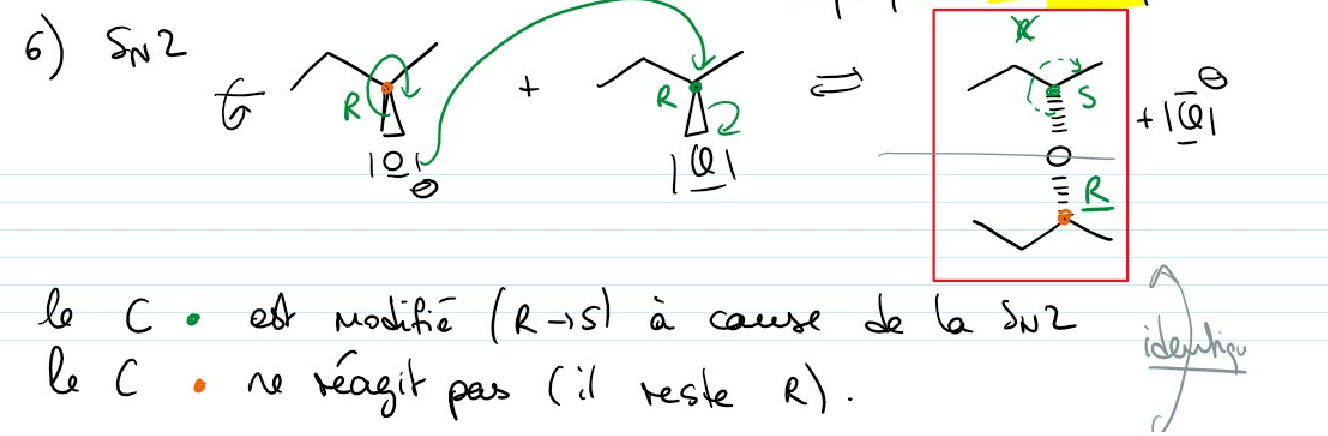 6) SN2
R + R ⇌ S + |Cl|⊖
|O|⊖ |Cl|
O
R
le C • est modifié (R→S) à cause de la SN2
le C • ne réagit pas (il reste R).